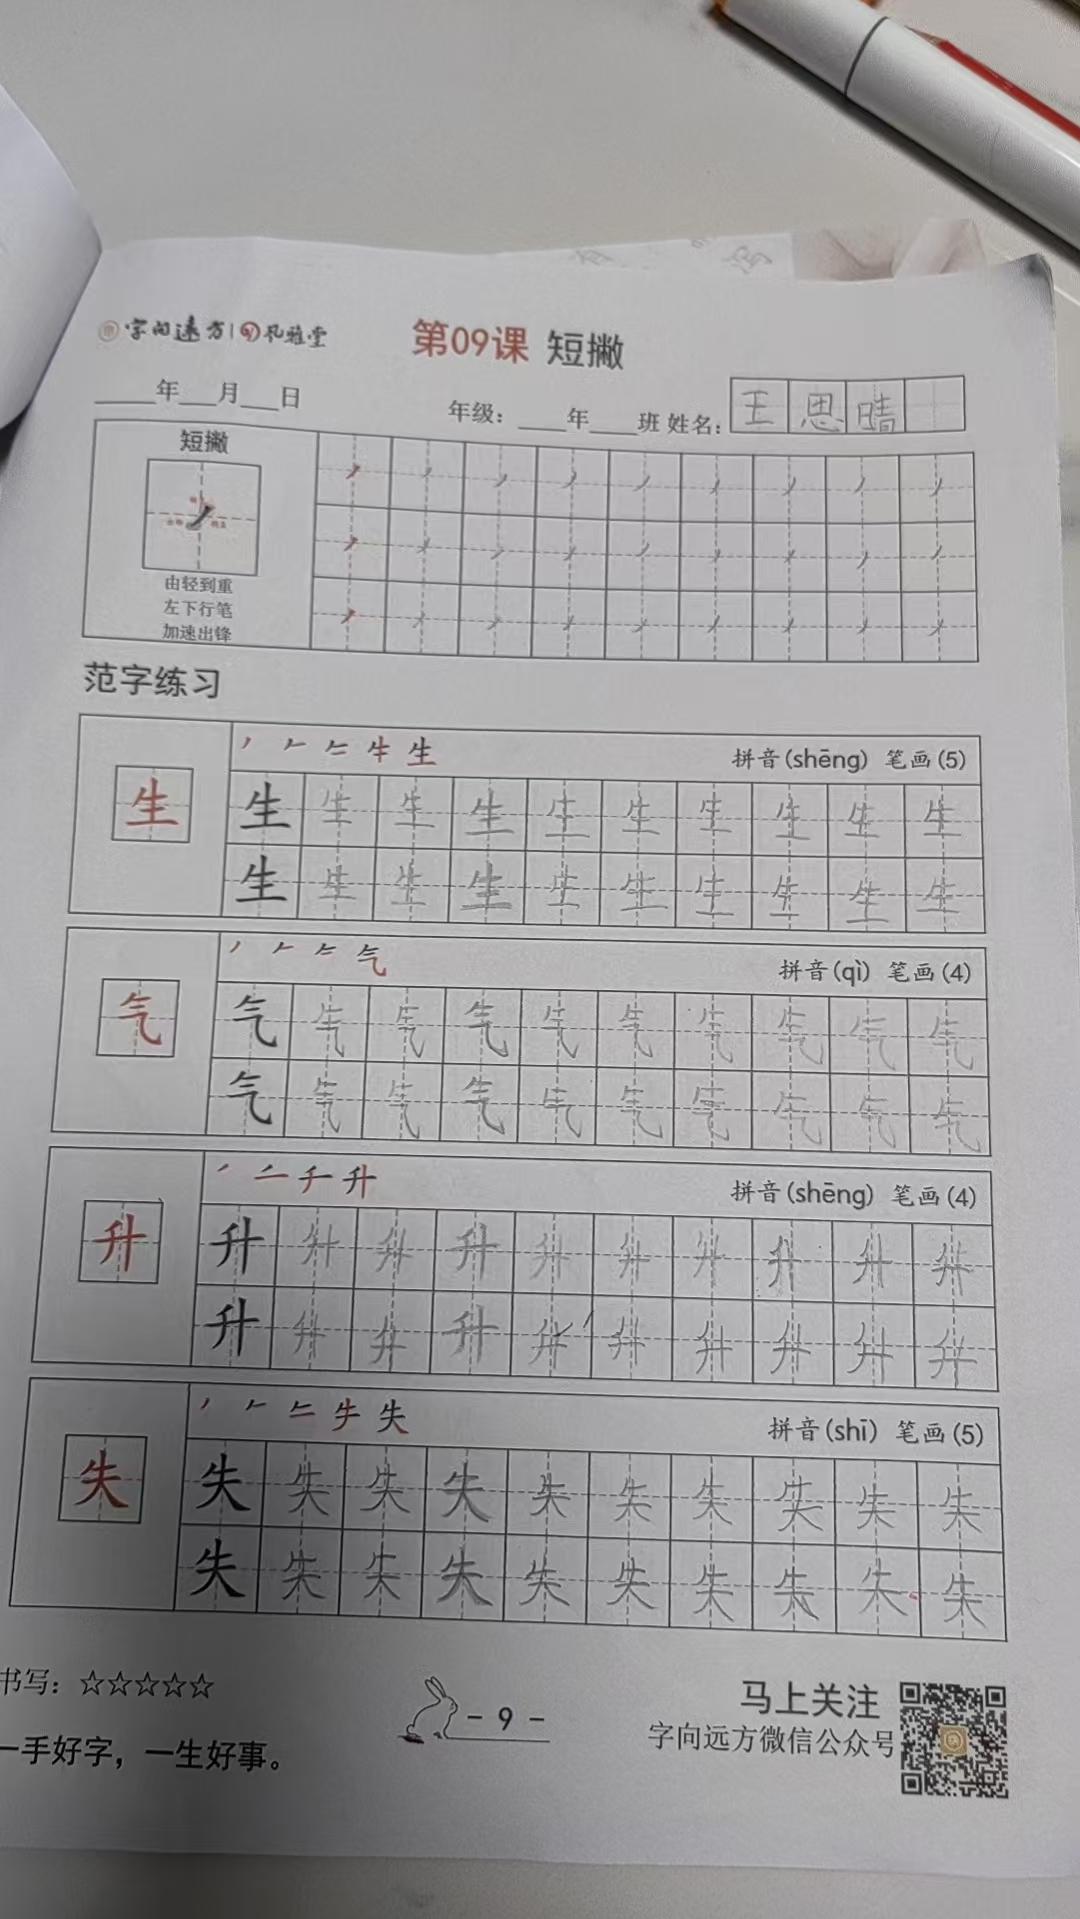 字向远方 | 孔雅堂
第09课 短撇
____年___月___日
年级：____年____班 姓名：王思晴
短撇
由轻到重
左下行笔
加速出锋
范字练习
生 拼音(shēng) 笔画(5)
生 生 生 生 生 生 生 生 生 生 生
生 生 生 生 生 生 生 生 生 生
气 拼音(qì) 笔画(4)
气 气 气 气 气 气 气 气 气 气 气
气 气 气 气 气 气 气 气 气 气
升 拼音(shēng) 笔画(4)
升 升 升 升 升 升 升 升 升 升 升
升 升 升 升 升 升 升 升 升 升
失 拼音(shī) 笔画(5)
失 失 失 失 失 失 失 失 失 失 失
失 失 失 失 失 失 失 失 失 失
书写：☆☆☆☆☆
- 9 -
马上关注
字向远方微信公众号
一手好字，一生好事。